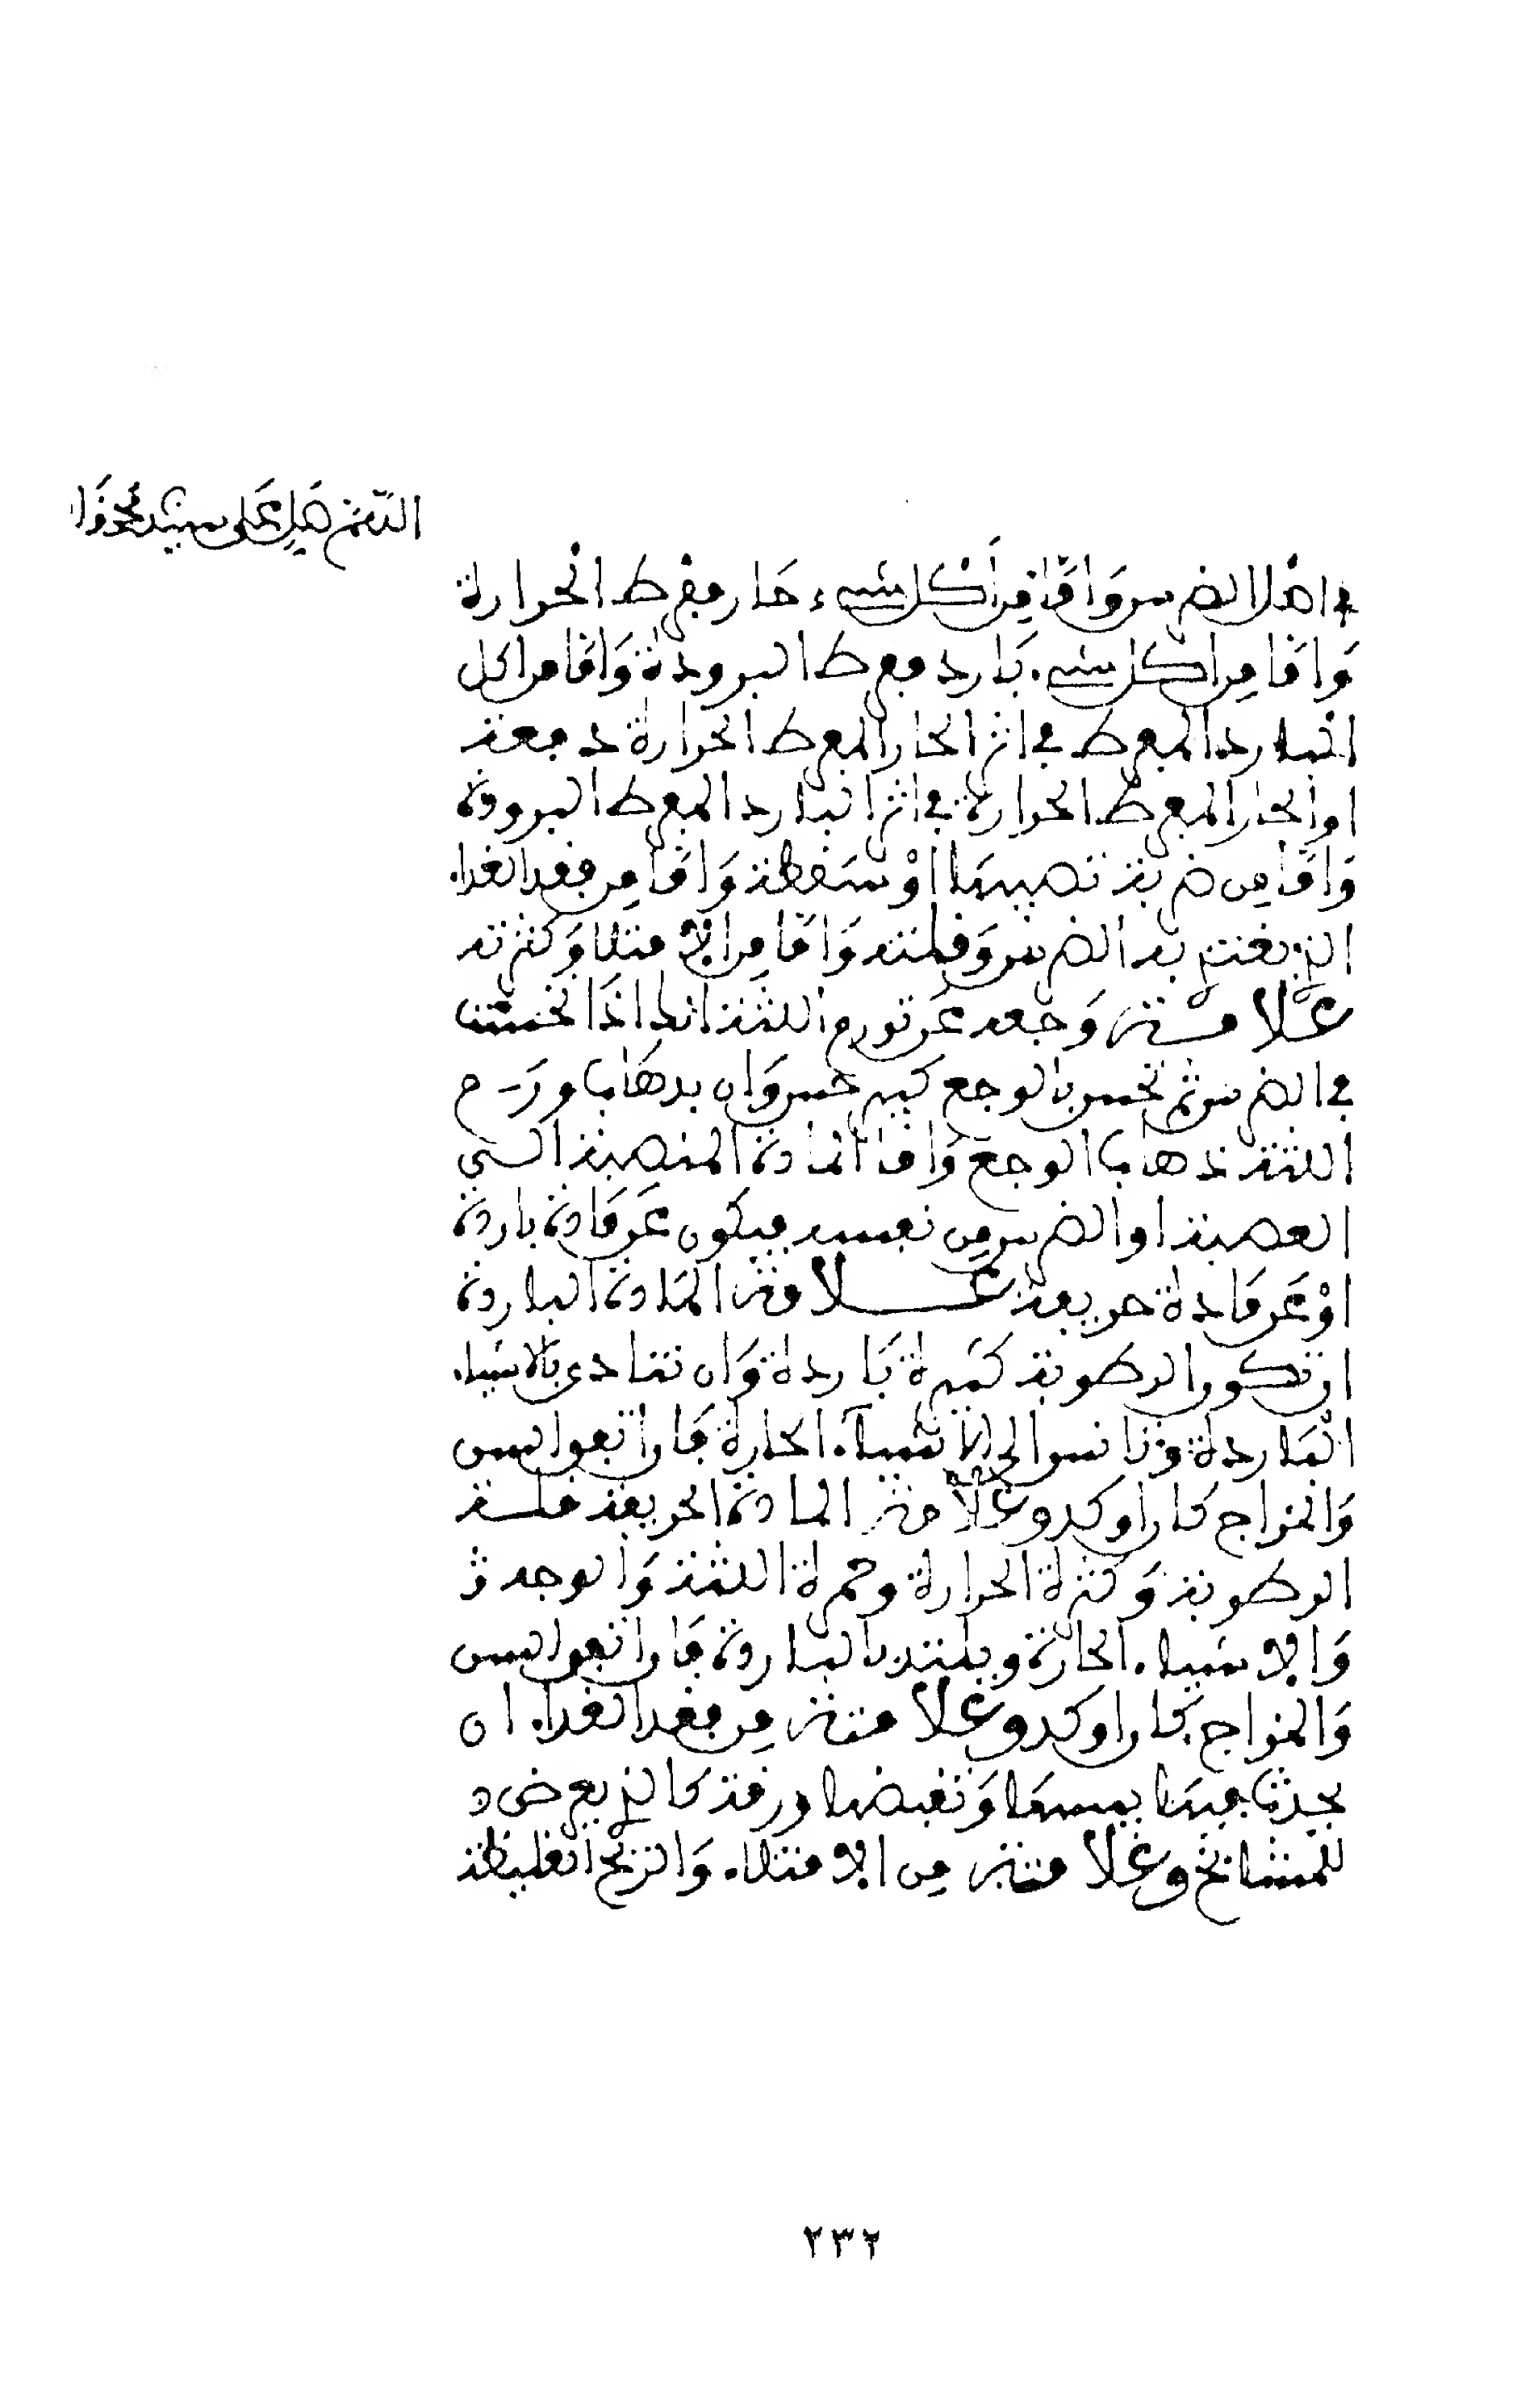 اللهم صل على سيدنا محمد وءا
في اصل الضرس وَامَّا مِن أَكْل شيء حَار مفرط الحرارة
وَامَّا مِن اكل شيء بَارد مفرط البرودة وَامَّا من اكل
البارد المفرط في اثر الحار المفرط الحرارة دفعة
او الحار المفرط الحرارة في اثر البارد المفرط البرودة
وَامَّا مِن ضربة تصيبها اوْ سَقطة وَامَّا مِن فقد الغذاء
الذي يغتذي به الضرس وَقلته وَامَّا مِن الامتلاء وَكثرته
عَلامة وَجعه عَن تورم اللثة انه اذَا
في الضرس ثم تحس بالوجع كبير حس وَان بذهاب ورَم
اللثة ذهاب الوجع وَامَّا المادة المنصبة الى
العصبة او الضرس مِن نفسه فيكون عَن مَادة باردة
اوْ عَن مَادة حريفة عَلامة المَادة الباردة
ان تكون الرطوبة كثيرة بَاردة وَان تتادى بالاشياء
البَاردة وتانس الى الاشياء الحارة فان اتفق السن
وَالمزاج كان اوكد وعَلامة المادة الحريفة قلة
الرطوبة وَكثرة الحرارة وحمرة اللثة وَالوجه
وَالاشياء الحارة ويلتذ بالباردة فان اتفق السن
وَالمزاج كان اوكد وعَلامة مِن فقد الغذاء ان
يحدث فيهَا يبسهَا وَتقبضها ورقة كالذي يعرض
للمشائخ وعَلامة مِن الامتلاء وَالريح الغليظة
٢٣٢